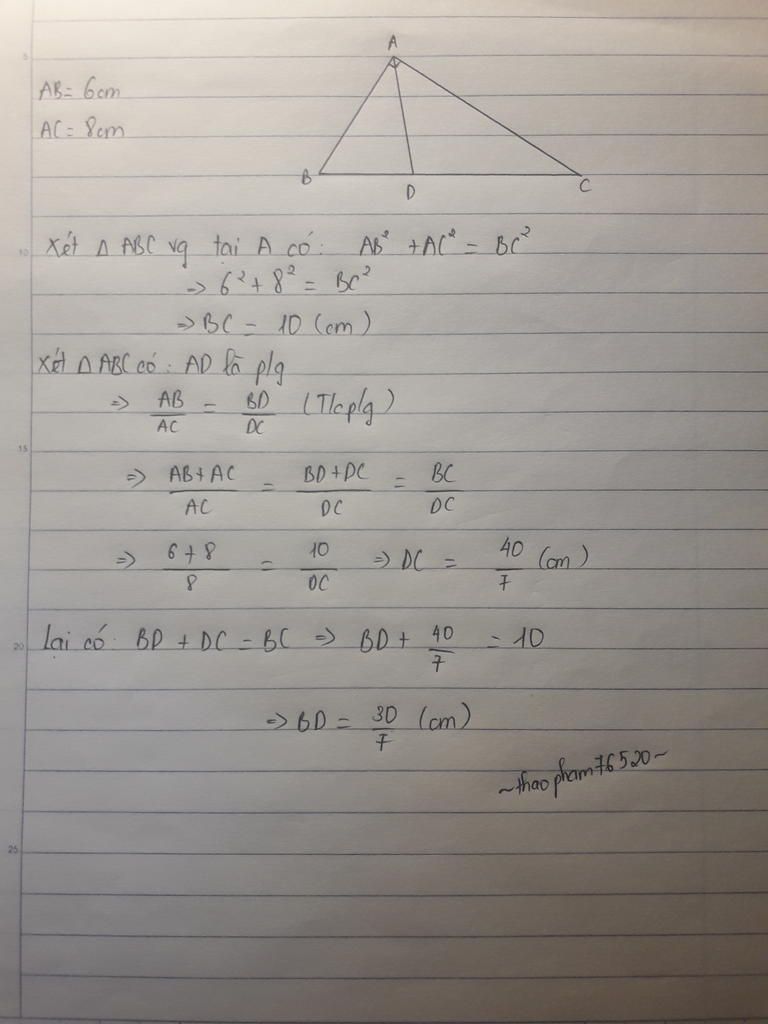 A
AB = 6cm
AC = 8cm
B
D
C
Xét Δ ABC vg tại A có: AB² + AC² = BC²
=> 6² + 8² = BC²
=> BC = 10 (cm)
Xét Δ ABC có: AD là p/g
=> AB/AC = BD/DC (T/c p/g)
=> AB+AC/AC = BD+DC/DC = BC/DC
=> 6+8/8 = 10/DC => DC = 40/7 (cm)
Lại có: BD + DC = BC => BD + 40/7 = 10
=> BD = 30/7 (cm)
~thaopham76520~
5
10
15
20
25